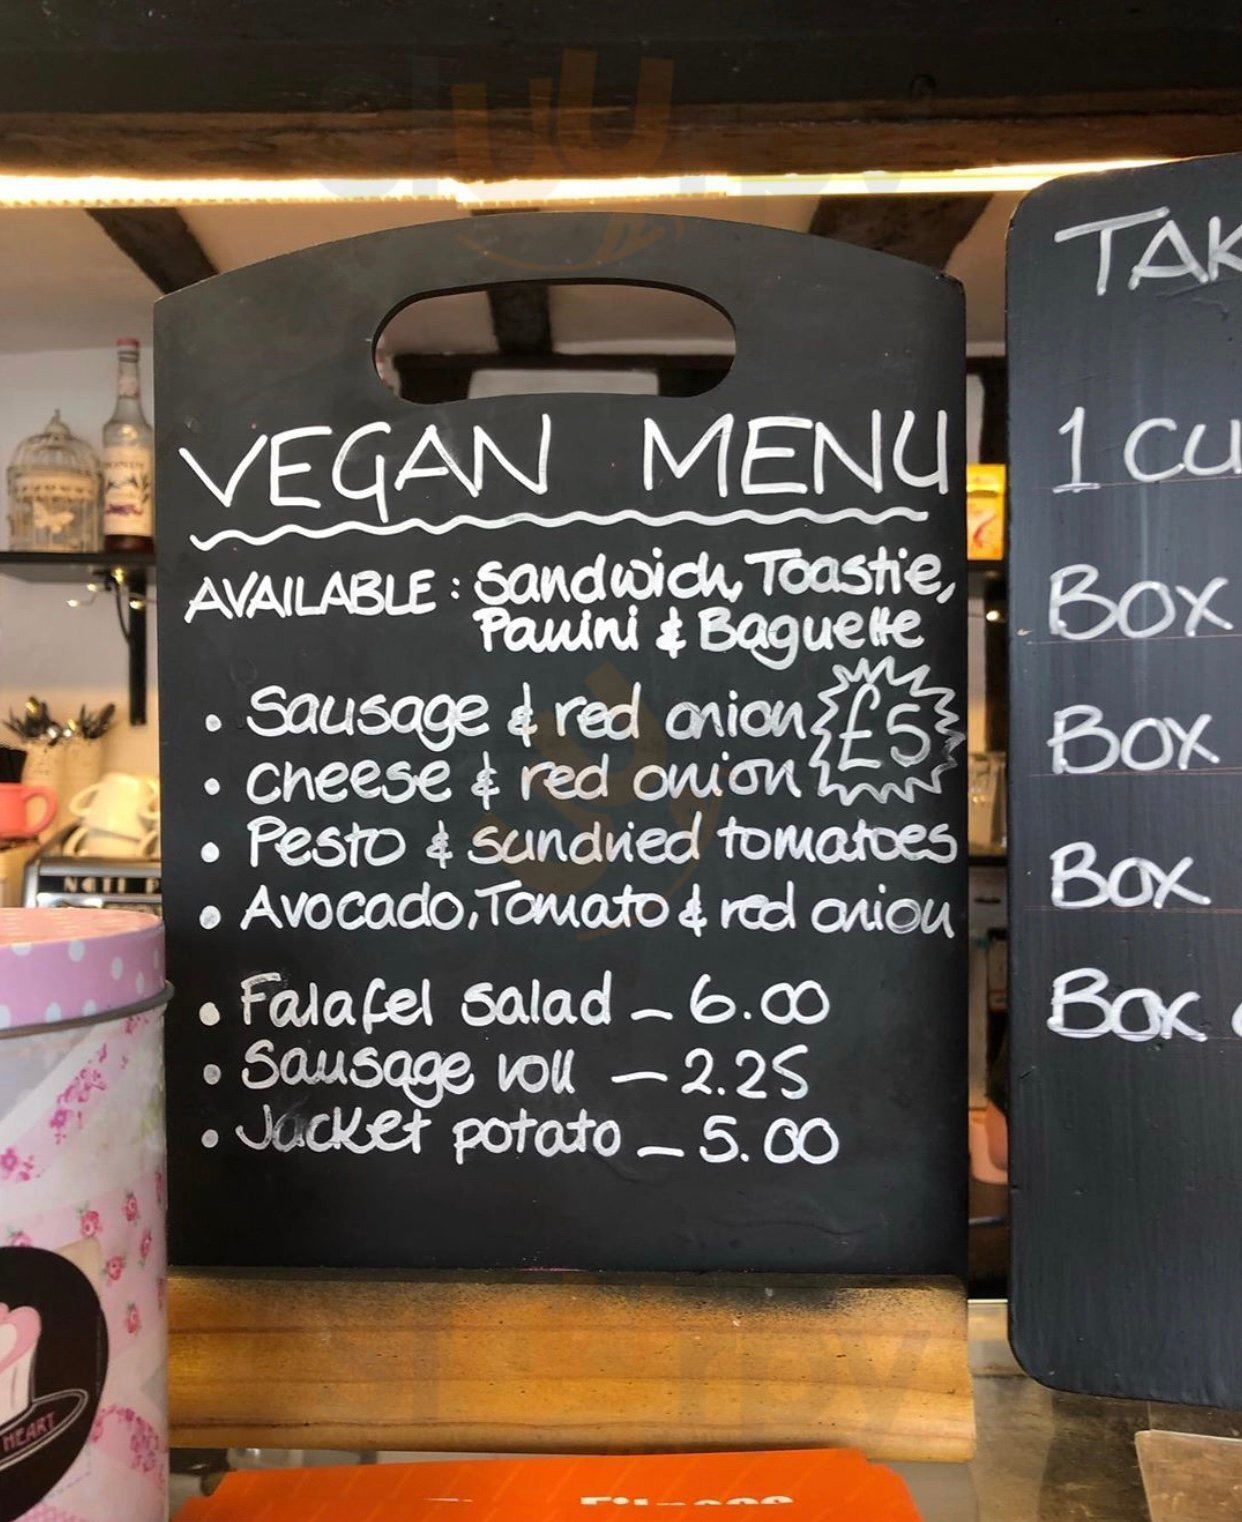 VEGAN MENU
AVAILABLE: Sandwich, Toastie,
Panini & Baguette
• Sausage & red onion £5
• Cheese & red onion
• Pesto & sundried tomatoes
• Avocado, Tomato & red onion
• Falafel salad – 6.00
• Sausage roll – 2.25
• Jacket potato – 5.00
TAK
1 CU
BOX
BOX
BOX
BOX
HEART